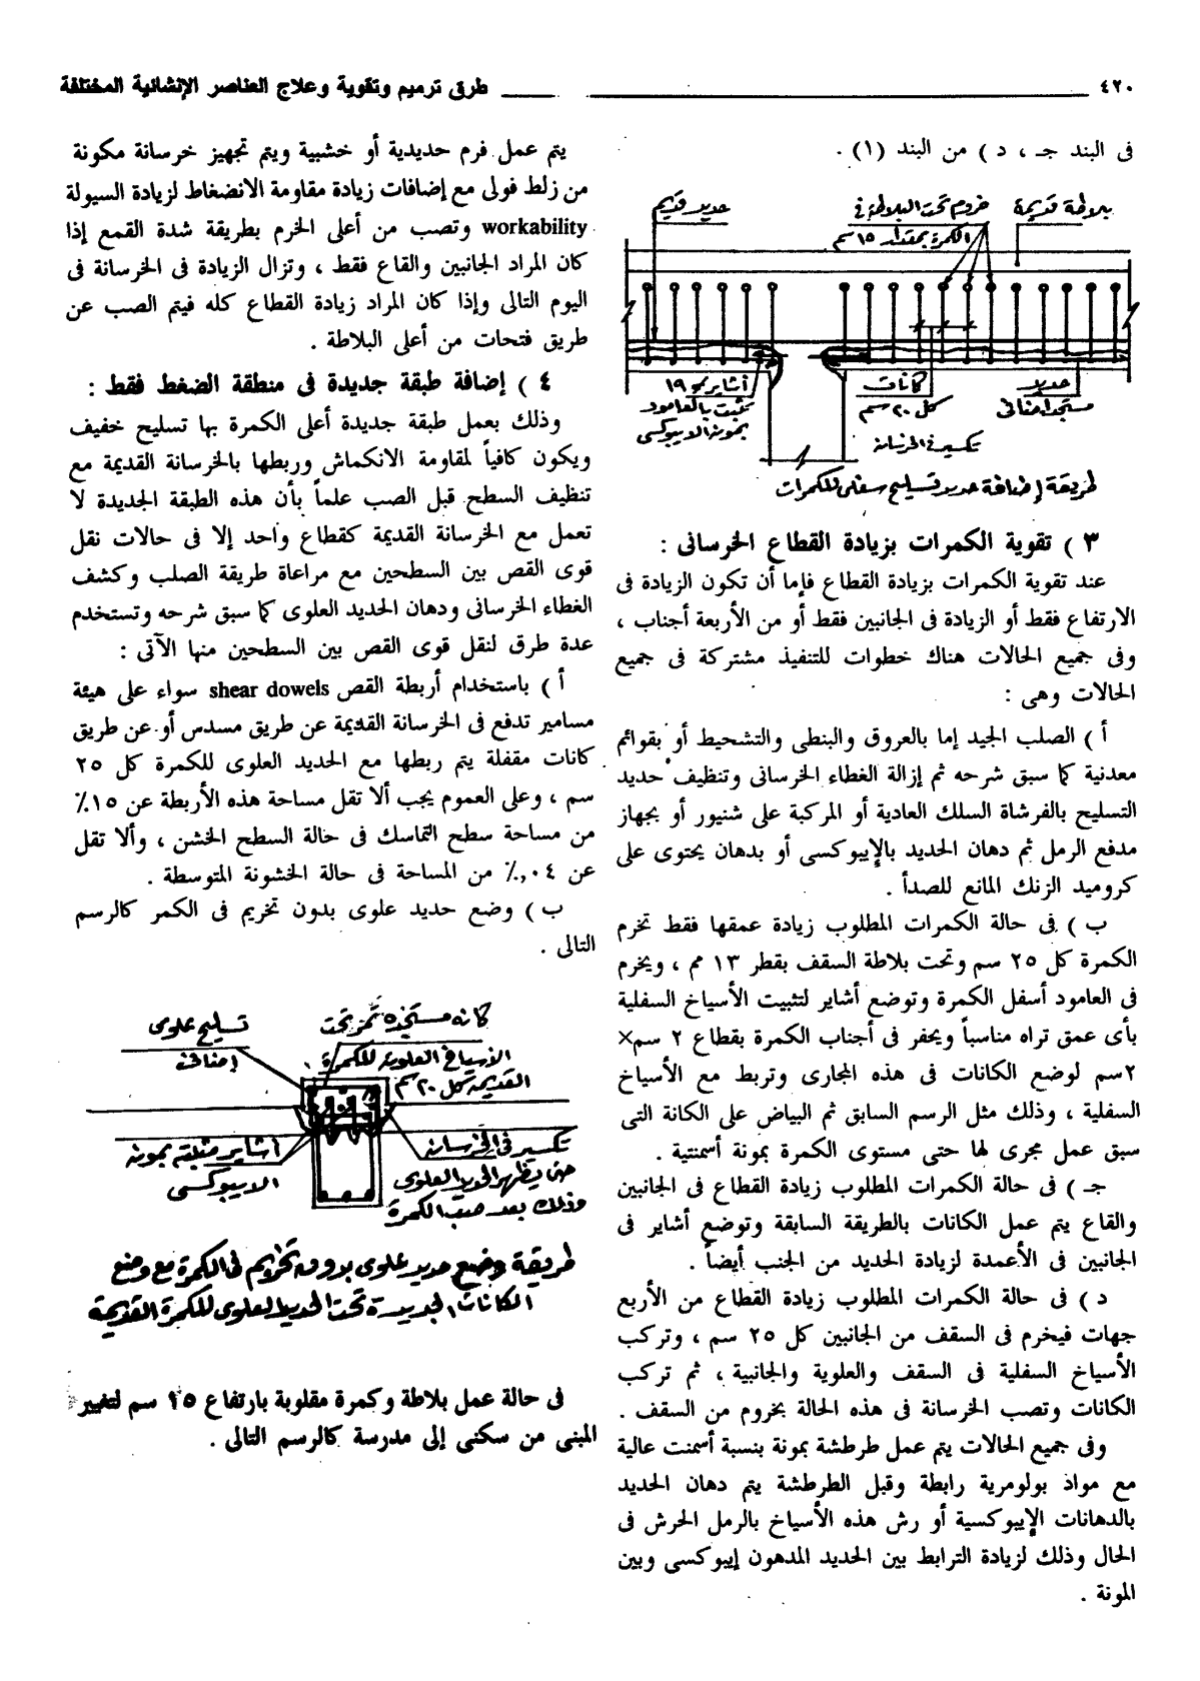 ٤٢٠
طرق ترميم وتقوية وعلاج العناصر الإنشائية المختلفة
فى البند جـ ، د ) من البند (١) .
بلاطة قديمة
خروم تحت البلاطة فى
الكمرة بمقدار ١٥ سم
حديد قديم
أشاير ١٩
تثبت بالعامود
بمونة الايبوكسى
كانات
كل ٢٠ سم
حديد
مستجد اضافى
تكسير فى الخرسانة
طريقة إضافة حديد تسليح سفلى للكمرات
٣ ) تقوية الكمرات بزيادة القطاع الخرسانى :
عند تقوية الكمرات بزيادة القطاع فإما أن تكون الزيادة فى
الارتفاع فقط أو الزيادة فى الجانبين فقط أو من الأربعة أجناب ،
وفى جميع الحالات هناك خطوات للتنفيذ مشتركة فى جميع
الحالات وهى :
أ ) الصلب الجيد إما بالعروق والبنطى والتشحيط أو بقوائم
معدنية كما سبق شرحه ثم إزالة الغطاء الخرسانى وتنظيف حديد
التسليح بالفرشاة السلك العادية أو المركبة على شنيور أو بجهاز
مدفع الرمل ثم دهان الحديد بالإيبوكسى أو بدهان يحتوى على
كروميد الزنك المانع للصدأ .
ب ) فى حالة الكمرات المطلوب زيادة عمقها فقط تخرم
الكمرة كل ٢٥ سم وتحت بلاطة السقف بقطر ١٣ مم ، ويخرم
فى العامود أسفل الكمرة وتوضع أشاير لتثبيت الأسياخ السفلية
بأى عمق تراه مناسباً ويحفر فى أجناب الكمرة بقطاع ٢ سم×
٢سم لوضع الكانات فى هذه المجارى وتربط مع الأسياخ
السفلية ، وذلك مثل الرسم السابق ثم البياض على الكانة التى
سبق عمل مجرى لها حتى مستوى الكمرة بمونة أسمنتية .
جـ ) فى حالة الكمرات المطلوب زيادة القطاع فى الجانبين
والقاع يتم عمل الكانات بالطريقة السابقة وتوضع أشاير فى
الجانبين فى الأعمدة لزيادة الحديد من الجنب أيضاً .
د ) فى حالة الكمرات المطلوب زيادة القطاع من الأربع
جهات فيخرم فى السقف من الجانبين كل ٢٥ سم ، وتركب
الأسياخ السفلية فى السقف والعلوية والجانبية ، ثم تركب
الكانات وتصب الخرسانة فى هذه الحالة بخروم من السقف .
وفى جميع الحالات يتم عمل طرطشة بمونة بنسبة أسمنت عالية
مع مواد بولومرية رابطة وقبل الطرطشة يتم دهان الحديد
بالدهانات الإيبوكسية أو رش هذه الأسياخ بالرمل الحرش فى
الحال وذلك لزيادة الترابط بين الحديد المدهون إيبوكسى وبين
المونة .
يتم عمل فرم حديدية أو خشبية ويتم تجهيز خرسانة مكونة
من زلط فولى مع إضافات زيادة مقاومة الانضغاط لزيادة السيولة
workability وتصب من أعلى الخرم بطريقة شدة القمع إذا
كان المراد الجانبين والقاع فقط ، وتزال الزيادة فى الخرسانة فى
اليوم التالى وإذا كان المراد زيادة القطاع كله فيتم الصب عن
طريق فتحات من أعلى البلاطة .
٤ ) إضافة طبقة جديدة فى منطقة الضغط فقط :
وذلك بعمل طبقة جديدة أعلى الكمرة بها تسليح خفيف
ويكون كافياً لمقاومة الانكماش وربطها بالخرسانة القديمة مع
تنظيف السطح قبل الصب علماً بأن هذه الطبقة الجديدة لا
تعمل مع الخرسانة القديمة كقطاع واحد إلا فى حالات نقل
قوى القص بين السطحين مع مراعاة طريقة الصلب وكشف
الغطاء الخرسانى ودهان الحديد العلوى كما سبق شرحه وتستخدم
عدة طرق لنقل قوى القص بين السطحين منها الآتى :
أ ) باستخدام أربطة القص shear dowels سواء على هيئة
مسامير تدفع فى الخرسانة القديمة عن طريق مسدس أو عن طريق
كانات مقفلة يتم ربطها مع الحديد العلوى للكمرة كل ٢٥
سم ، وعلى العموم يجب ألا تقل مساحة هذه الأربطة عن ١٥٪
من مساحة سطح التماسك فى حالة السطح الخشن ، وألا تقل
عن ٠٤,٪ من المساحة فى حالة الخشونة المتوسطة .
ب ) وضع حديد علوى بدون تخريم فى الكمر كالرسم
التالى .
كانه مستجده تمر تحت
الأسياخ العلوية للكمرة
القديمة كل ٢٠ سم
تسليح علوى
إضافى
أشاير مثبته بمونه
الايبوكسى
تكسير فى الخرسانه
حتى يظهر الحديد العلوى
وذلك بعد صب الكمرة
طريقة وضع حديد علوى بدون تخريم فى الكمرة مع وضع
الكانات الجديدة تحت الحديد العلوى للكمرة القديمة
فى حالة عمل بلاطة وكمرة مقلوبة بارتفاع ١٥ سم لتغيير
المبنى من سكنى إلى مدرسة كالرسم التالى .